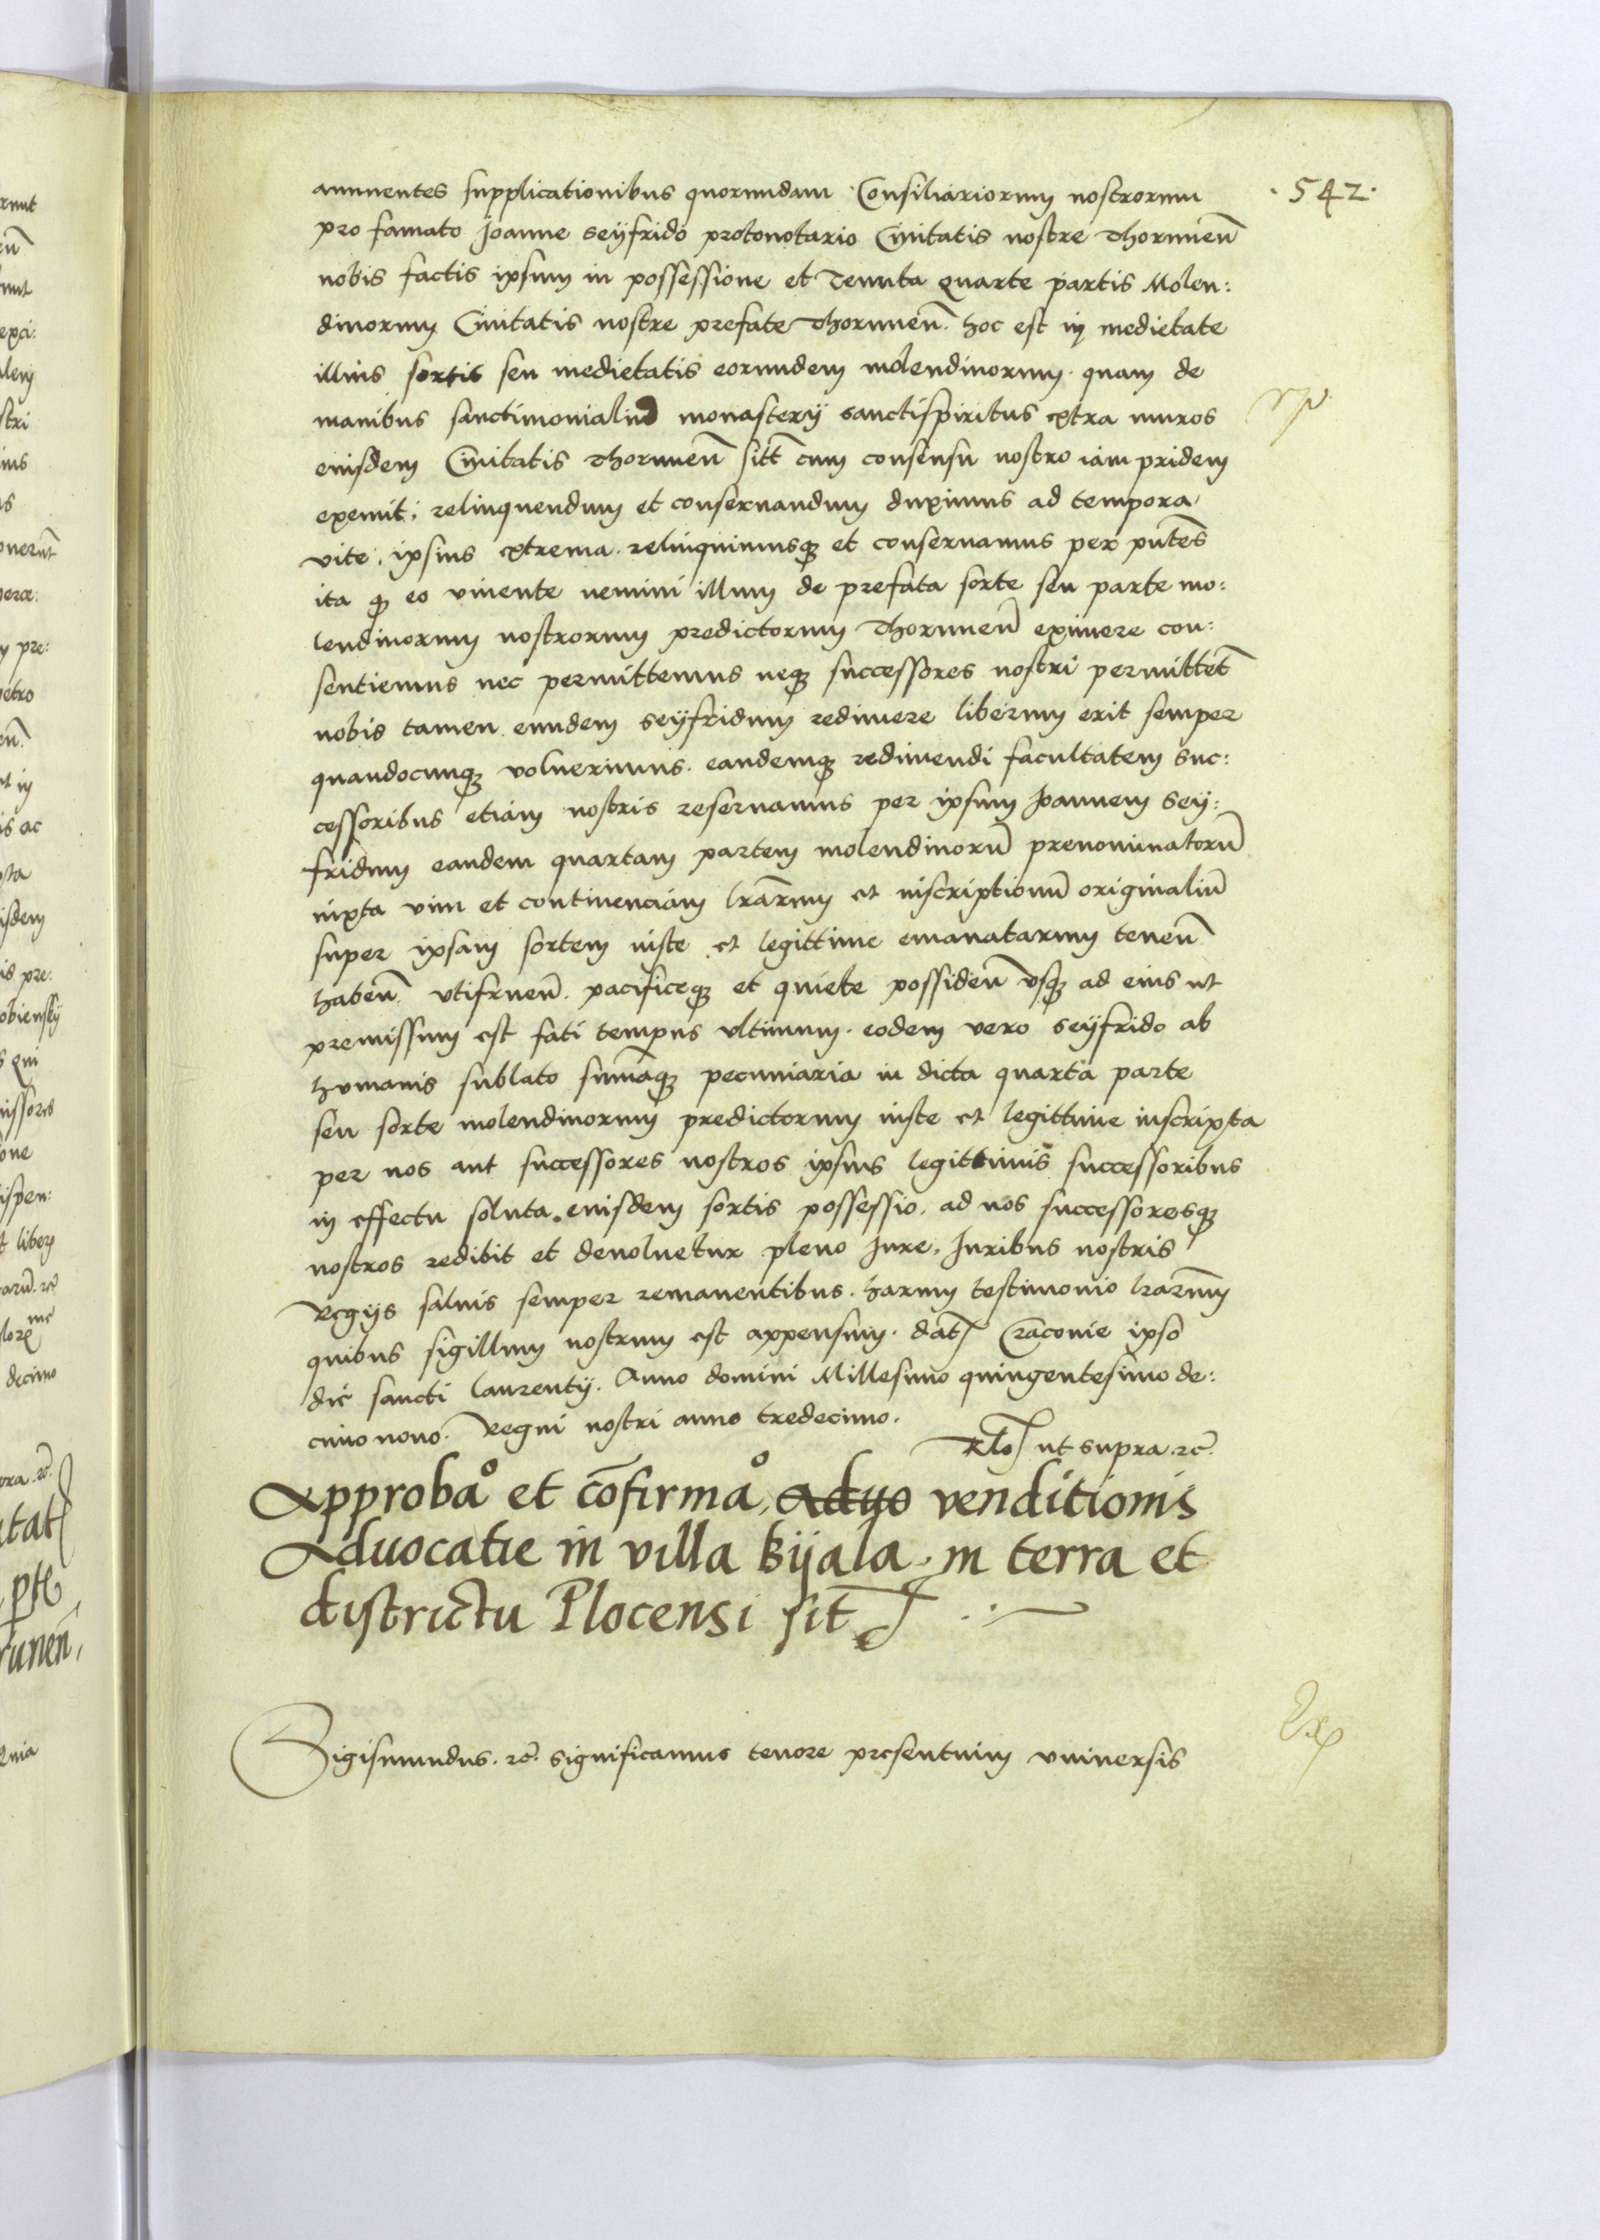 ·542·
annuentes supplicationibus quorundam Consiliariorum nostrorum
pro famato Joanne Seyfrido protonotario Civitatis nostre Thorunen̄
nobis factis ipsum in possessione et tenuta quarte partis Molen:
dinorum Civitatis nostre prefate Thorunen̄. hoc est in medietate
illius sortis seu medietatis eorundem molendinorum. quam de
manibus sanctimonialiū monasterij sanctispiritus extra muros
eiusdem Civitatis Thorunen̄ sitt̄ cum consensu nostro iam pridem
exemit. relinquendum et conservandum duximus ad tempora
vite ipsius extrema. relinquimusqꝫ et conservamus per pn̄tes
ita qꝫ eo vivente nemini illum de prefata sorte seu parte mo:
lendinorum nostrorum predictorum Thorunen̄ eximere con:
sentiemus nec permittemus neqꝫ successores nostri permittet̄
nobis tamen eundem Seyfridum redimere liberum erit semper
quandocunqꝫ voluerimus. eandemqꝫ redimendi facultatem suc:
cessoribus etiam nostris reservamus per ipsum Joannem Sey:
fridum eandem quartam partem molendinorū prenominatorū
iuxta vim et continenciam lr̄arum et inscriptionū originaliū
super ipsam sortem iuste et legittime emanatarum tenen̄
haben̄. utifruen̄. pacificeqꝫ et quiete possiden̄ usqꝫ ad eius ut
premissum est fati tempus ultimum. eodem vero Seyfrido ab
humanis sublato sum̄aqꝫ pecuniaria in dicta quarta parte
seu sorte molendinorum predictorum iuste et legittime inscripta
per nos aut successores nostros ipsius legittimis successoribus
in effectu soluta. eiusdem sortis possessio. ad nos successoresqꝫ
nostros redibit et devoluetur pleno Jure. Juribus nostris
Regijs salvis semper remanentibus. harum testimonio lr̄arum
quibus sigillum nostrum est appensum. dat̄ Cracovie ipso
die sancti laurentij. Anno domini Millesimo quingentesimo de:
cimo nono. Regni nostri anno tredecimo.
Rl̄o ut supra ꝛc̄.
Approbaº et cōfirmaº, Aduo venditionis
Advocatie in villa Bijala in terra et
districtu Plocensi sit̄
Sigismundus. ꝛc̄. significamus tenore presentium universis